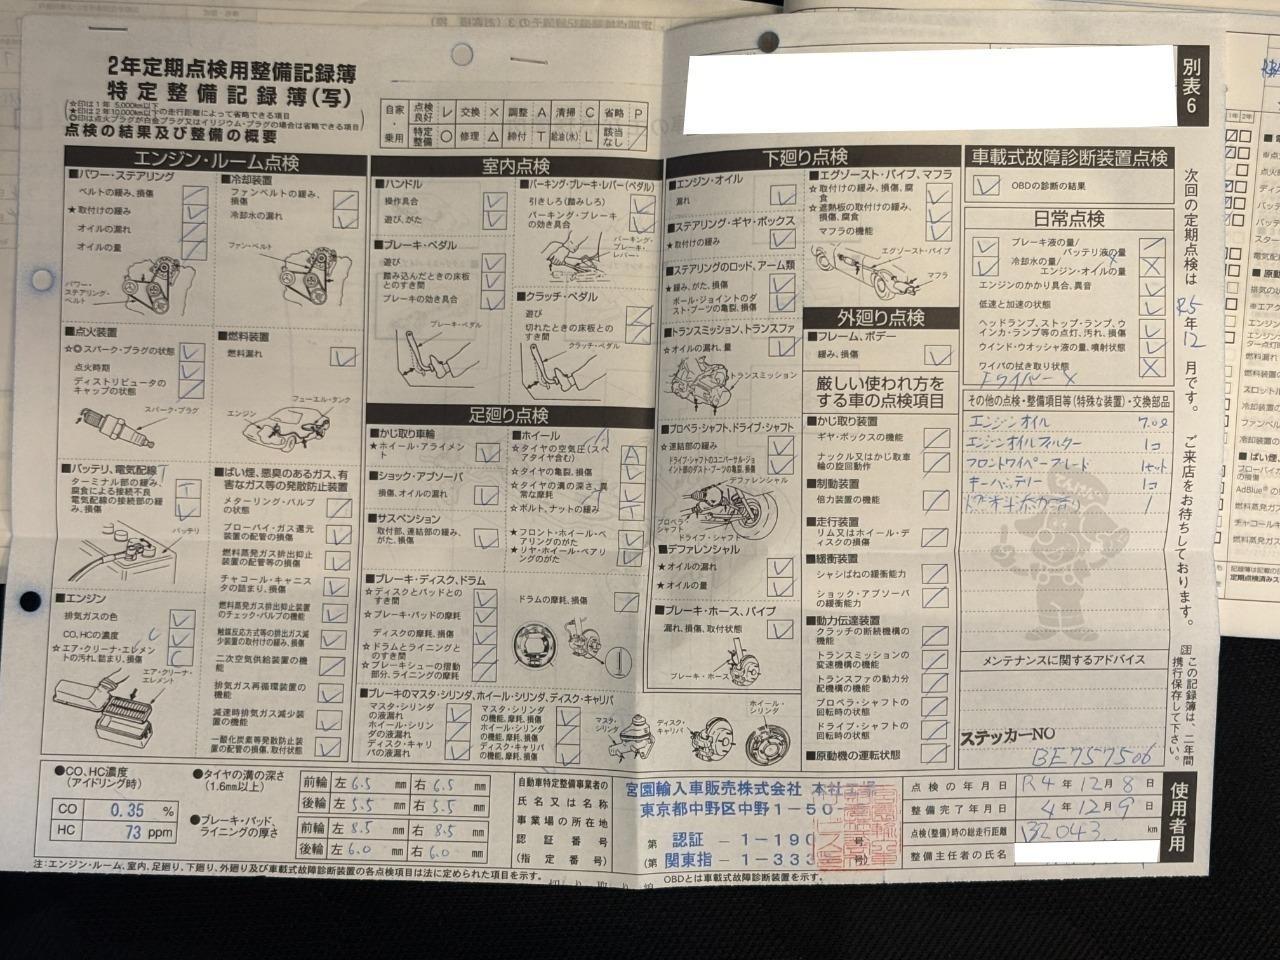 2年定期点検用整備記録簿
特定整備記録簿(写)
☆印は1年 5,000km以下
★印は2年10,000km以下の走行距離によって省略できる項目
◎印は点火プラグが白金プラグ又はイリジウム・プラグの場合は省略できる項目
点検の結果及び整備の概要
自家・乗用
点検良好 レ 交換 × 調整 A 清掃 C 省略 P
特定整備 ○ 修理 △ 締付 T 給油(水) L 該当なし /
別表6
エンジン・ルーム点検
■パワー・ステアリング
ベルトの緩み、損傷
★取付けの緩み
オイルの漏れ
オイルの量
パワー・ステアリング・ベルト
■冷却装置
ファンベルトの緩み、損傷
冷却水の漏れ
ファン・ベルト
■点火装置
☆◎スパーク・プラグの状態
点火時期
ディストリビュータのキャップの状態
スパーク・プラグ
■燃料装置
燃料漏れ
フューエル・タンク
エンジン
■バッテリ、電気配線
ターミナル部の緩み、腐食による接続不良
電気配線の接続部の緩み、損傷
バッテリ
■ばい煙、悪臭のあるガス、有害なガス等の発散防止装置
メターリング・バルブの状態
ブローバイ・ガス還元装置の配管の損傷
燃料蒸発ガス排出抑止装置の配管等の損傷
チャコール・キャニスタの詰まり、損傷
燃料蒸発ガス排出抑止装置のチェック・バルブの機能
触媒反応方式等の排出ガス減少装置の取付けの緩み、損傷
二次空気供給装置の機能
排気ガス再循環装置の機能
減速時排気ガス減少装置の機能
一酸化炭素等発散防止装置の配管の損傷、取付状態
■エンジン
排気ガスの色
CO、HCの濃度
☆エア・クリーナ・エレメントの汚れ、詰まり、損傷
エア・クリーナ・エレメント
室内点検
■ハンドル
操作具合
遊び、がた
■ブレーキ・ペダル
遊び
踏み込んだときの床板とのすき間
ブレーキの効き具合
ブレーキ・ペダル
■パーキング・ブレーキ・レバー(ペダル)
引きしろ(踏みしろ)
パーキング・ブレーキの効き具合
パーキング・ブレーキ・レバー
■クラッチ・ペダル
遊び
切れたときの床板とのすき間
クラッチ・ペダル
足廻り点検
■かじ取り車輪
★ホイール・アライメント
■ショック・アブソーバ
損傷、オイルの漏れ
■サスペンション
取付部、連結部の緩み、がた、損傷
■ホイール
☆タイヤの空気圧(スペアタイヤ含む)
☆タイヤの亀裂、損傷
☆タイヤの溝の深さ、異常な摩耗
☆ボルト、ナットの緩み
★フロント・ホイール・ベアリングのがた
★リヤ・ホイール・ベアリングのがた
■ブレーキ・ディスク、ドラム
☆ディスクとパッドとのすき間
☆ブレーキ・パッドの摩耗
ディスクの摩耗、損傷
☆ドラムとライニングとのすき間
☆ブレーキシューの摺動部分、ライニングの摩耗
ドラムの摩耗、損傷
①
■ブレーキのマスタ・シリンダ、ホイール・シリンダ、ディスク・キャリパ
マスタ・シリンダの液漏れ
ホイール・シリンダの液漏れ
ディスク・キャリパの液漏れ
マスタ・シリンダの機能、摩耗、損傷
ホイール・シリンダの機能、摩耗、損傷
ディスク・キャリパの機能、摩耗、損傷
マスタ・シリンダ
ディスク・キャリパ
ホイール・シリンダ
下廻り点検
■エンジン・オイル
漏れ
■ステアリング・ギヤ・ボックス
★取付けの緩み
■ステアリングのロッド、アーム類
★緩み、がた、損傷
ボール・ジョイントのダスト・ブーツの亀裂、損傷
■トランスミッション、トランスファ
☆オイルの漏れ、量
トランスミッション
■プロペラ・シャフト、ドライブ・シャフト
★連結部の緩み
ドライブ・シャフトのユニバーサル・ジョイント部のダスト・ブーツの亀裂、損傷
デファレンシャル
プロペラ・シャフト
ドライブ・シャフト
■デファレンシャル
★オイルの漏れ
★オイルの量
■ブレーキ・ホース、パイプ
漏れ、損傷、取付状態
ブレーキ・ホース
■エグゾースト・パイプ、マフラ
☆取付けの緩み、損傷、腐食
☆遮熱板の取付けの緩み、損傷、腐食
マフラの機能
エグゾースト・パイプ
マフラ
外廻り点検
■フレーム、ボデー
緩み、損傷
厳しい使われ方をする車の点検項目
■かじ取り装置
ギヤ・ボックスの機能
ナックル又はかじ取車輪の旋回作動
■制動装置
倍力装置の機能
■走行装置
リム又はホイール・ディスクの損傷
■緩衝装置
シャシばねの緩衝能力
ショック・アブソーバの緩衝能力
■動力伝達装置
クラッチの断続機構の機能
トランスミッションの変速機構の機能
トランスファの動力分配機構の機能
プロペラ・シャフトの回転時の状態
ドライブ・シャフトの回転時の状態
■原動機の運転状態
車載式故障診断装置点検
OBDの診断の結果
日常点検
ブレーキ液の量/バッテリ液の量
冷却水の量/エンジン・オイルの量
エンジンのかかり具合、異音
低速と加速の状態
ヘッドランプ、ストップ・ランプ、ウインカ・ランプ等の点灯、汚れ、損傷
ウインド・ウオッシャ液の量、噴射状態
ワイパの拭き取り状態
Fワイパー ×
その他の点検・整備項目等(特殊な装置)・交換部品
エンジンオイル 7.0ℓ
エンジンオイルフィルター 1コ
フロントワイパーブレード 1セット
キーバッテリー 1コ
メンテナンスに関するアドバイス
ステッカーNO
BE757506
次回の定期点検は R5年12月です。ご来店をお待ちしております。
注 この記録簿は、二年間携行保存して下さい。
使用者用
●CO、HC濃度(アイドリング時)
CO 0.35 %
HC 73 ppm
●タイヤの溝の深さ(1.6mm以上)
前輪 左 6.5 mm 右 6.5 mm
後輪 左 5.5 mm 右 5.5 mm
●ブレーキ・パッド、ライニングの厚さ
前輪 左 8.5 mm 右 8.5 mm
後輪 左 6.0 mm 右 6.0 mm
自動車特定整備事業者の氏名又は名称
事業場の所在地
認証番号
(指定番号)
宮園輸入車販売株式会社 本社工場
東京都中野区中野1-50-
第 認証 -1-190 号
(第 関東指-1-333 号)
点検の年月日 R4年12月8日
整備完了年月日 4年12月9日
点検(整備)時の総走行距離 132043 km
整備主任者の氏名
注:エンジン・ルーム、室内、足廻り、下廻り、外廻り及び車載式故障診断装置の各点検項目は法に定められた項目を示す。
OBDとは車載式故障診断装置を示す。